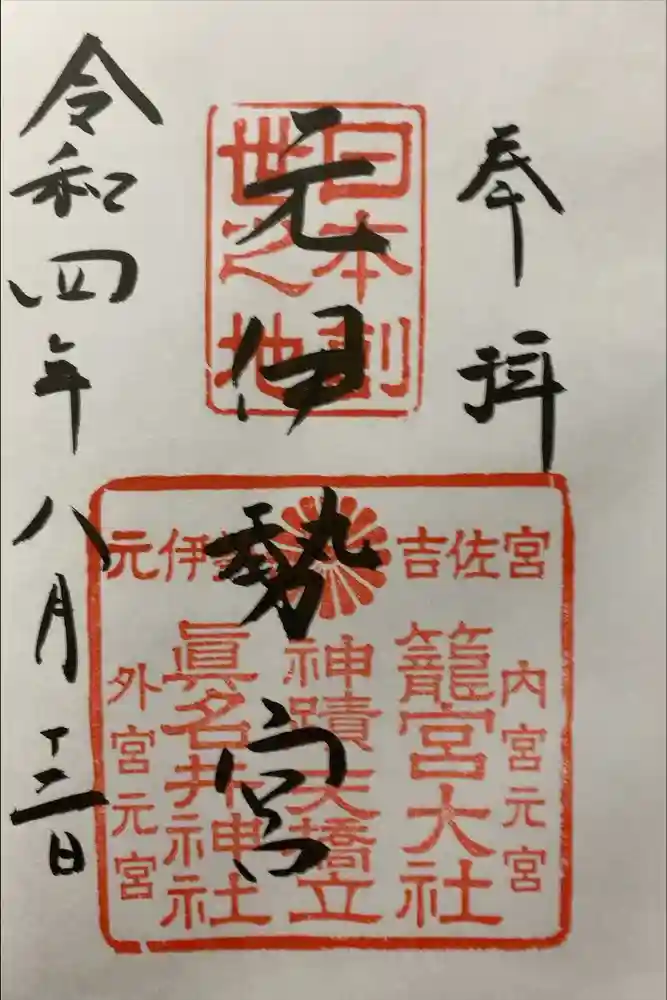 奉拝
元伊勢宮
令和四年八月十三日
日本創
世之地
元伊勢 吉佐宮
内宮元宮
籠宮大社
神蹟 天橋立
眞名井神社
外宮元宮